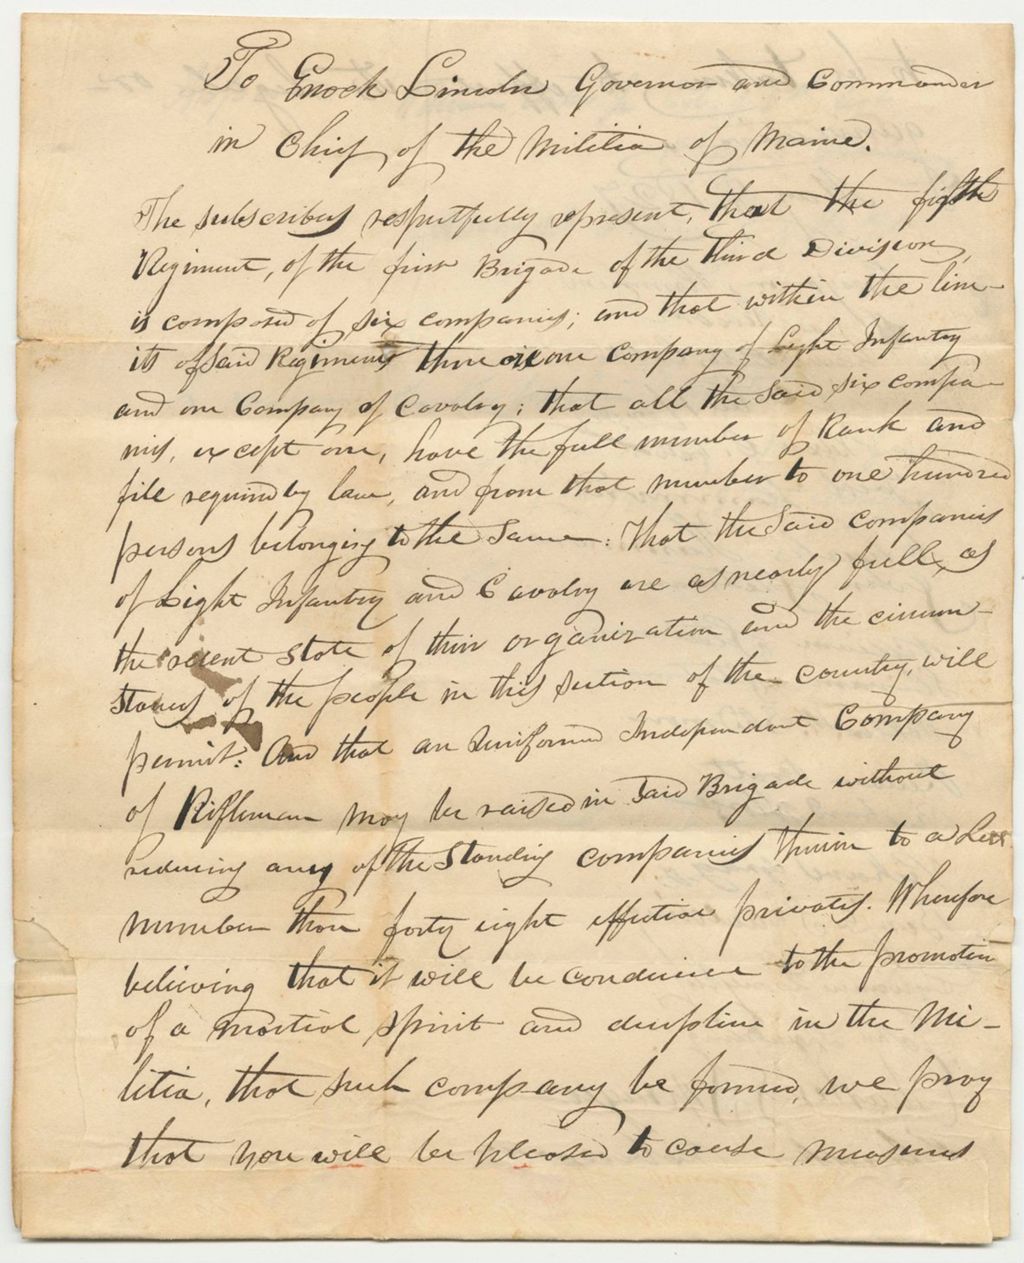 To Enock Lincoln Governor and Commander
in Chief of the Militia of Maine.
The subscribers respectfully represent, that the fifth
Regiment, of the first Brigade of the third Division,
is composed of six companies; and that within the lim-
its of said Regiment there is one Company of Light Infantry
and one Company of Cavalry; that all the said six compa-
nies, except one, have the full number of Rank and
file required by law, and from that number to one hundred
persons belonging to the same: That the said companies
of Light Infantry and Cavalry are as nearly full, as
the recent state of their organization and the circum-
stances of the people in this section of the country, will
permit: And that an Uniformed Independant Company
of Rifleman may be raised in said Brigade without
reducing any of the standing companies therein to a less
number than forty eight effective privates. Wherefore
believing that it will be conducive to the promotion
of a martial spirit and discipline in the Mi-
litia, that such company be formed, we pray
that you will be pleased to cause measures